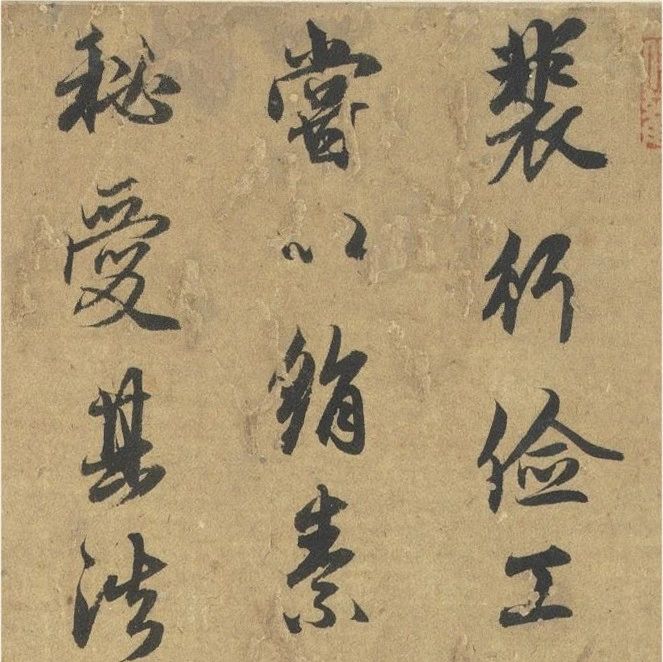 裴行儉工
嘗以絹素
秘愛其法